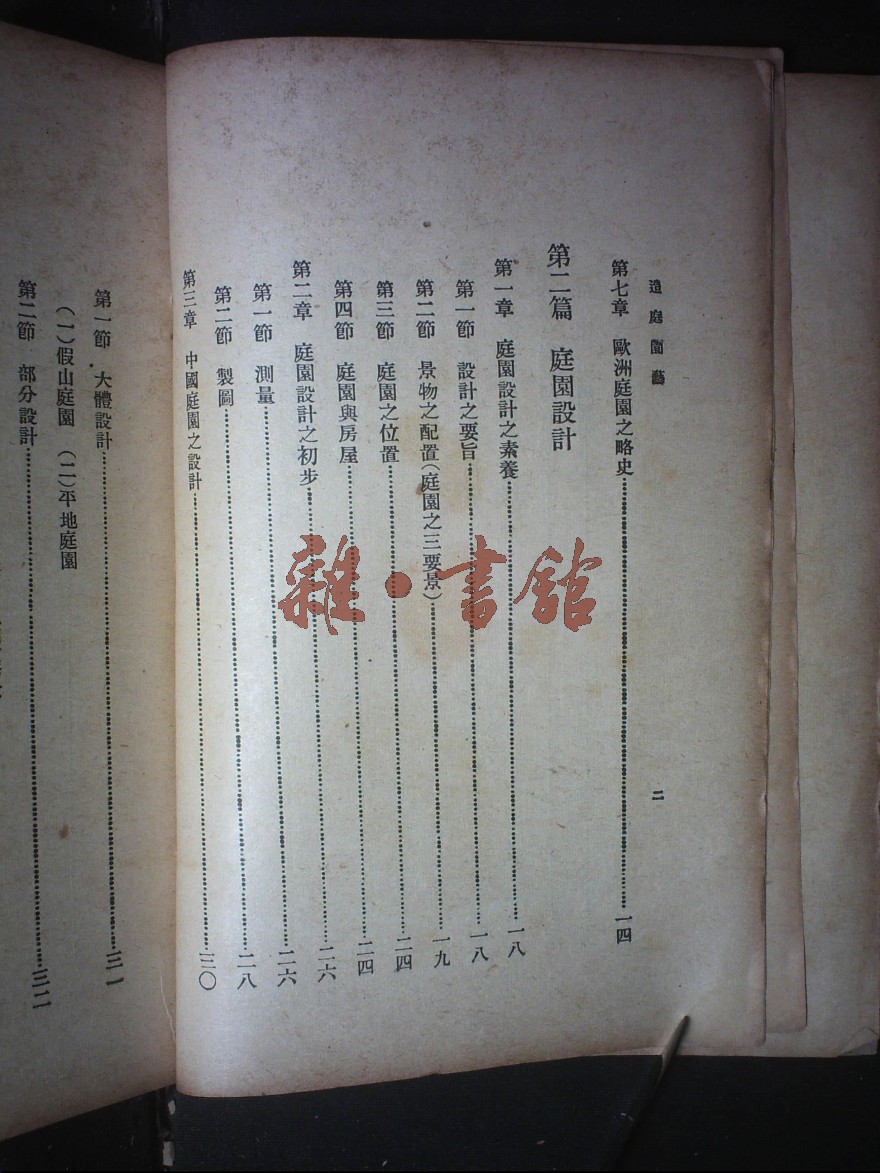 造庭園藝
二
第七章 歐洲庭園之略史……一四
第二篇 庭園設計
第一章 庭園設計之素養……一八
第一節 設計之要旨……一八
第二節 景物之配置(庭園之三要景)……一九
第三節 庭園之位置……二四
第四節 庭園與房屋……二四
第二章 庭園設計之初步……二六
第一節 測量……二六
第二節 製圖……二八
第三章 中國庭園之設計……三〇
第一節 大體設計……三一
(一)假山庭園 (二)平地庭園
第二節 部分設計……三二
雜·書館